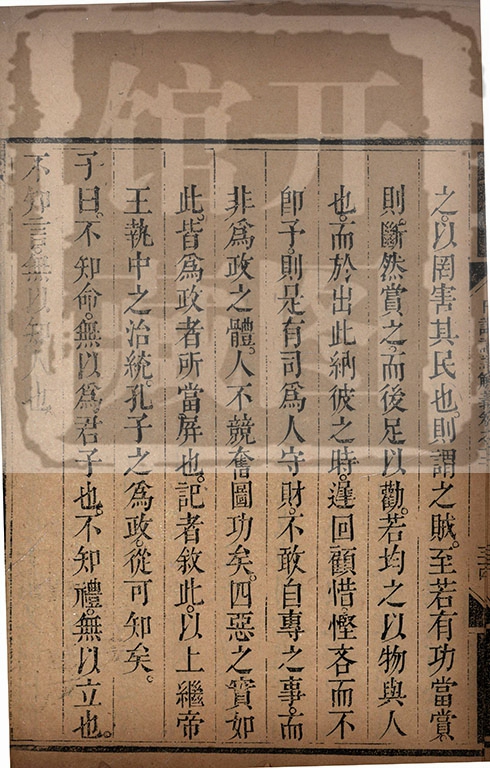 之以罔害其民也則謂之賊。至若有功當賞、
則斷然賞之。而後足以勸。若均之以物與人
也。而於出此納彼之時。遲回顧惜。慳吝而不
卽予。則是有司爲人守財。不敢自專之事。而
非爲政之體。人不競奮圖功矣。四惡之實如
此。皆爲政者所當屏也。記者敘此。以上繼帝
王執中之治統。孔子之爲政。從可知矣。
子曰。不知命。無以爲君子也。不知禮。無以立也。
不知言。無以知人也。